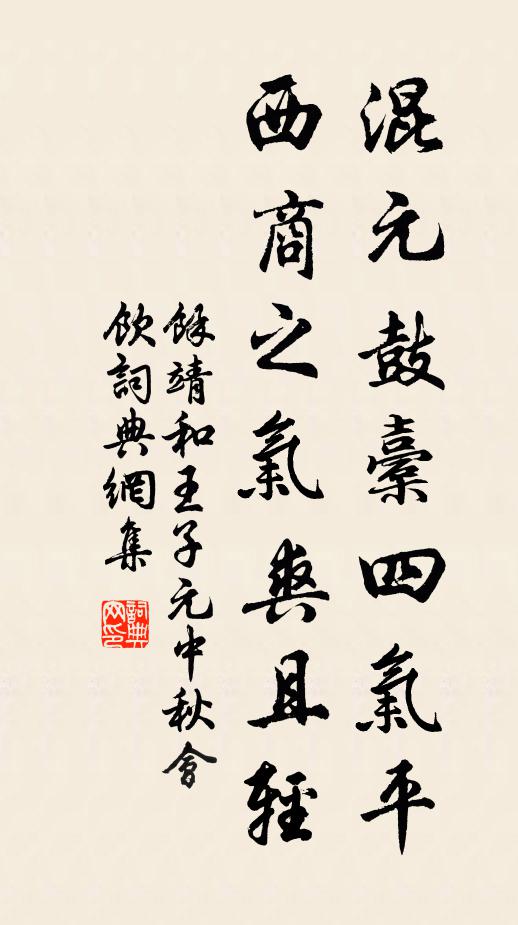 混元鼓橐四氣平
西商之氣爽且輕
餘靖和王子元中秋會
飲詞典網集
詞典
网印